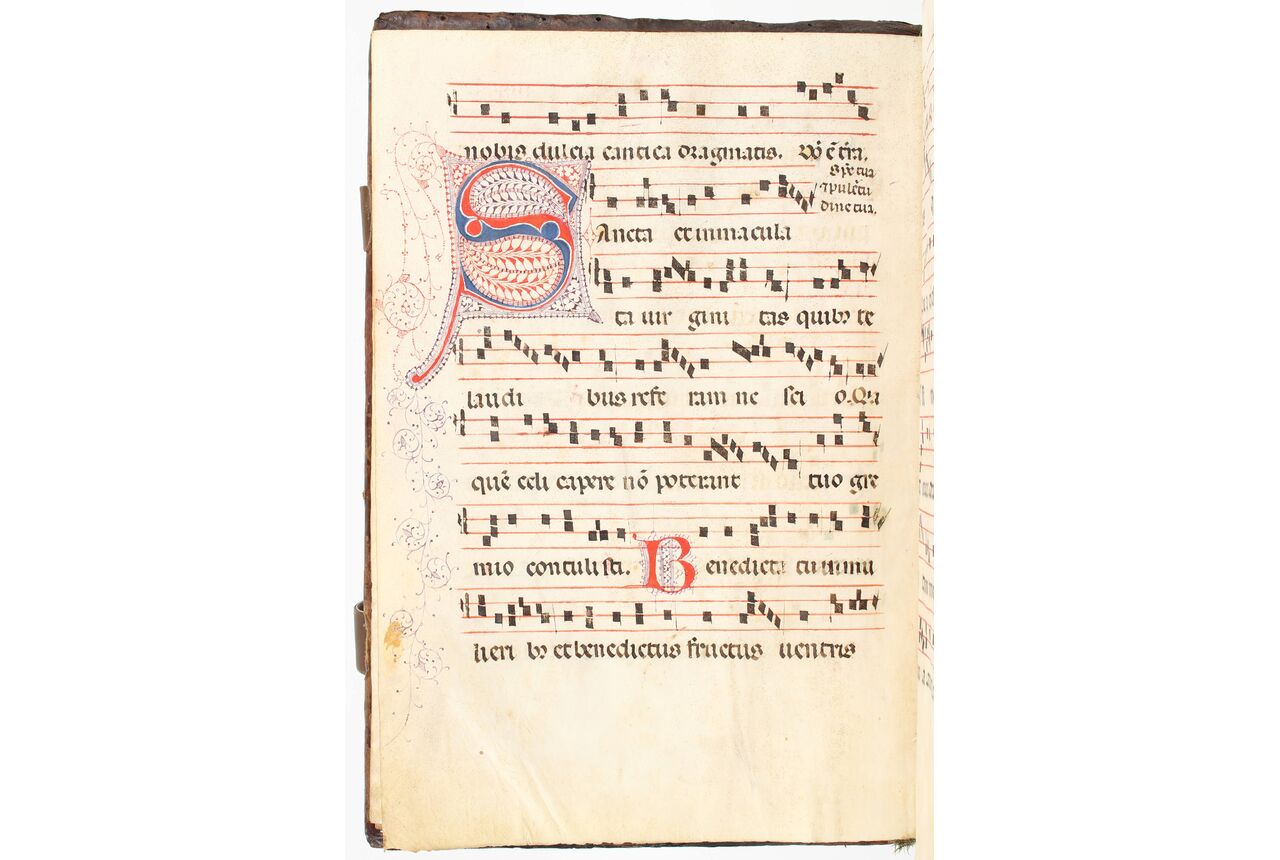 nobis dulcia cantica dragmatis. Vỏ ētra.
Spē tua
dinetua.
SAncta et inmacula
ta uir gini tas quibꝫ te
laudi bus refe ram ne sci o. Qia
quē celi capere nō poterant tuo gre
mio contulisti. Benedicta tu inmu
lieri bꝫ et benedictus fructus uentris